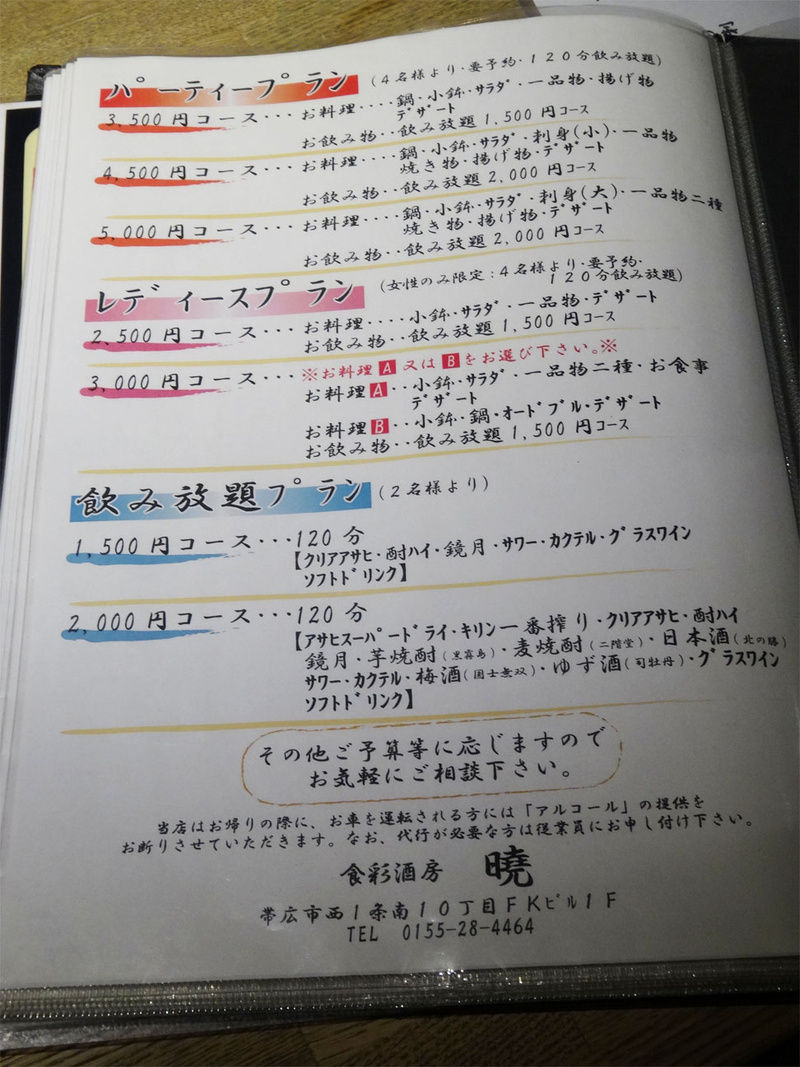 パーティープラン (4名様より・要予約・120分飲み放題)
3,500円コース・・・お料理・・・・鍋・小鉢・サラダ・一品物・揚げ物
デザート
お飲み物・・飲み放題1,500円コース
4,500円コース・・・お料理・・・・鍋・小鉢・サラダ・刺身(小)・一品物
焼き物・揚げ物・デザート
お飲み物・・飲み放題2,000円コース
5,000円コース・・・お料理・・・・鍋・小鉢・サラダ・刺身(大)・一品物二種
焼き物・揚げ物・デザート
お飲み物・・飲み放題2,000円コース
レディースプラン (女性のみ限定:4名様より・要予約・
120分飲み放題)
2,500円コース・・・お料理・・・・小鉢・サラダ・一品物・デザート
お飲み物・・飲み放題1,500円コース
3,000円コース・・・※お料理A又はBをお選び下さい。※
お料理A・・小鉢・サラダ・一品物二種・お食事
デザート
お料理B・・小鉢・鍋・オードブル・デザート
お飲み物・・飲み放題1,500円コース
飲み放題プラン (2名様より)
1,500円コース・・・120分
【クリアアサヒ・酎ハイ・鏡月・サワー・カクテル・グラスワイン
ソフトドリンク】
2,000円コース・・・120分
【アサヒスーパードライ・キリン一番搾り・クリアアサヒ・酎ハイ
鏡月・芋焼酎(黒霧島)・麦焼酎(二階堂)・日本酒(北の勝)
サワー・カクテル・梅酒(国士無双)・ゆず酒(司牡丹)・グラスワイン
ソフトドリンク】
その他ご予算等に応じますので
お気軽にご相談下さい。
当店はお帰りの際に、お車を運転される方には「アルコール」の提供を
お断りさせていただきます。なお、代行が必要な方は従業員にお申し付け下さい。
食彩酒房 暁
帯広市西1条南10丁目FKビル1F
TEL 0155-28-4464